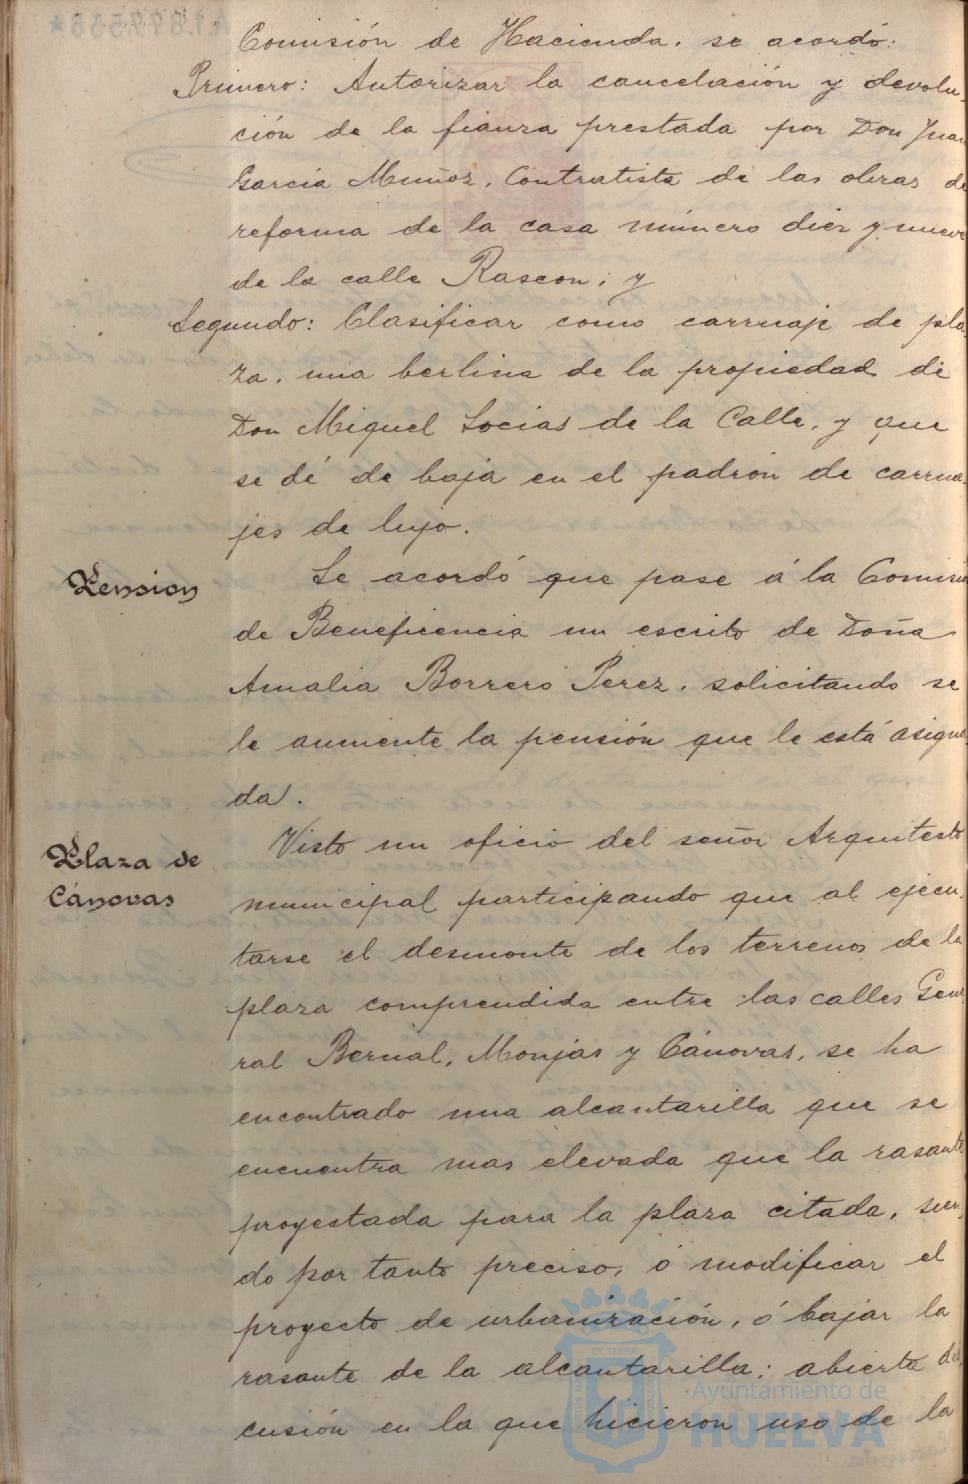 Comisión de Hacienda. se acordó:
Primero: Autorizar la cancelación y devolu-
ción de la fianza prestada por Don Juan
García Muñoz, Contratista de las obras de
reforma de la casa número diez y nueve
de la calle Rascon; y
Segundo: Clasificar como carruaje de pla-
za, una berlina de la propiedad de
Don Miguel Socias de la Calle, y que
se dé de baja en el padrón de carrua-
jes de lujo.
Pension
Se acordó que pase á la Comisión
de Beneficencia un escrito de Doña
Amalia Borrero Perez, solicitando se
le aumente la pensión que le está asigna-
da.
Plaza de
Cánovas
Visto un oficio del señor Arquitecto
municipal participando que al ejecu-
tarse el desmonte de los terrenos de la
plaza comprendida entre las calles Gene-
ral Bernal, Monjas y Cánovas, se ha
encontrado una alcantarilla que se
encuentra mas elevada que la rasante
proyectada para la plaza citada, sien-
do por tanto preciso, ó modificar el
proyecto de urbanización, ó bajar la
rasante de la alcantarilla; abierta dis-
cusión en la que hicieron uso de la
Ayuntamiento de
HUELVA